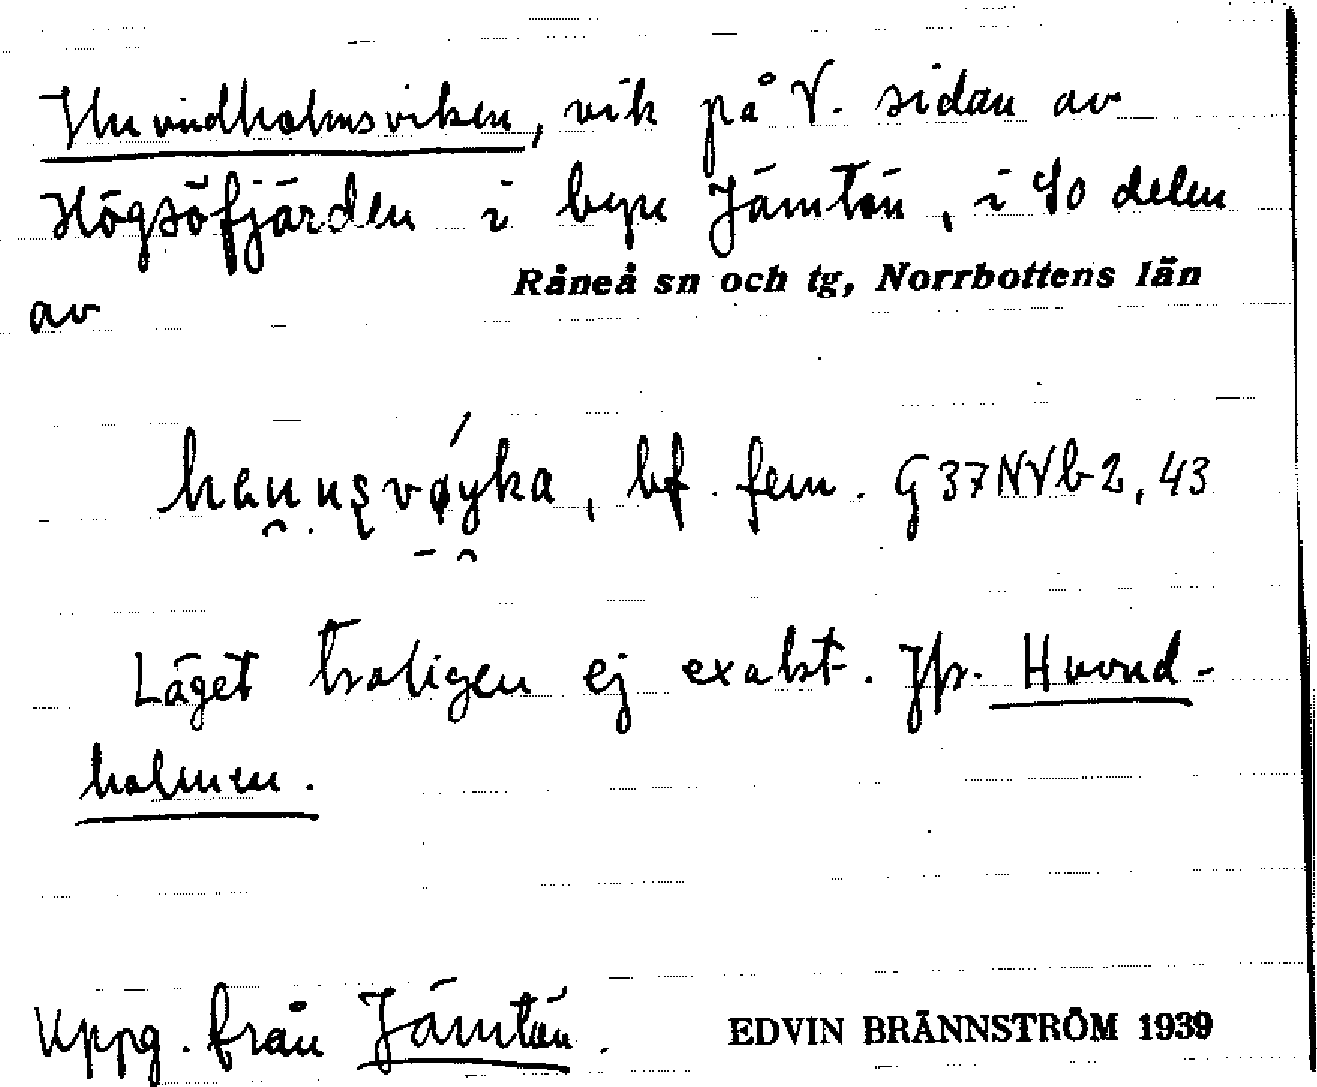 Huvudholmsviken, vik på V. sidan av
Högsöfjärden i byn Jämtön, i So delen
Råneå sn och tg, Norrbottens län
av
bf. fem. G37NVb2,43
Läget troligen ej exakt. Jfr. Huvud-
holmen.
Uppg. från Jämtön.
EDVIN BRÄNNSTRÖM 1939